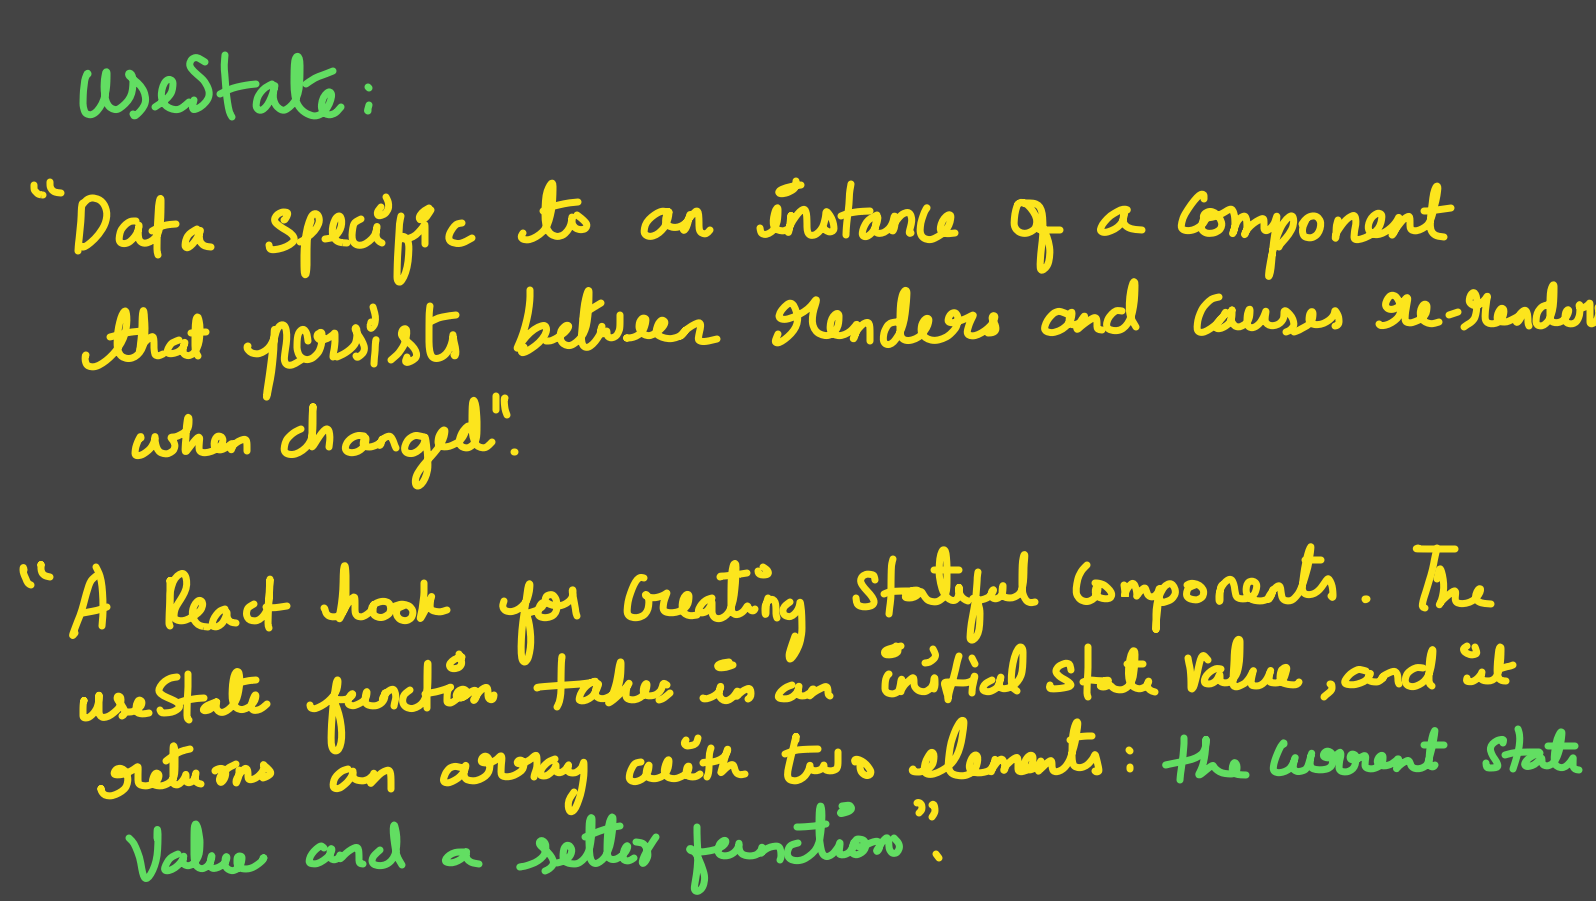 useState:
"Data specific to an instance of a component
that persists between renders and causes re-render
when changed".
"A React hook for creating stateful components. The
useState function takes in an initial state value, and it
returns an array with two elements: the current state
value and a setter function".